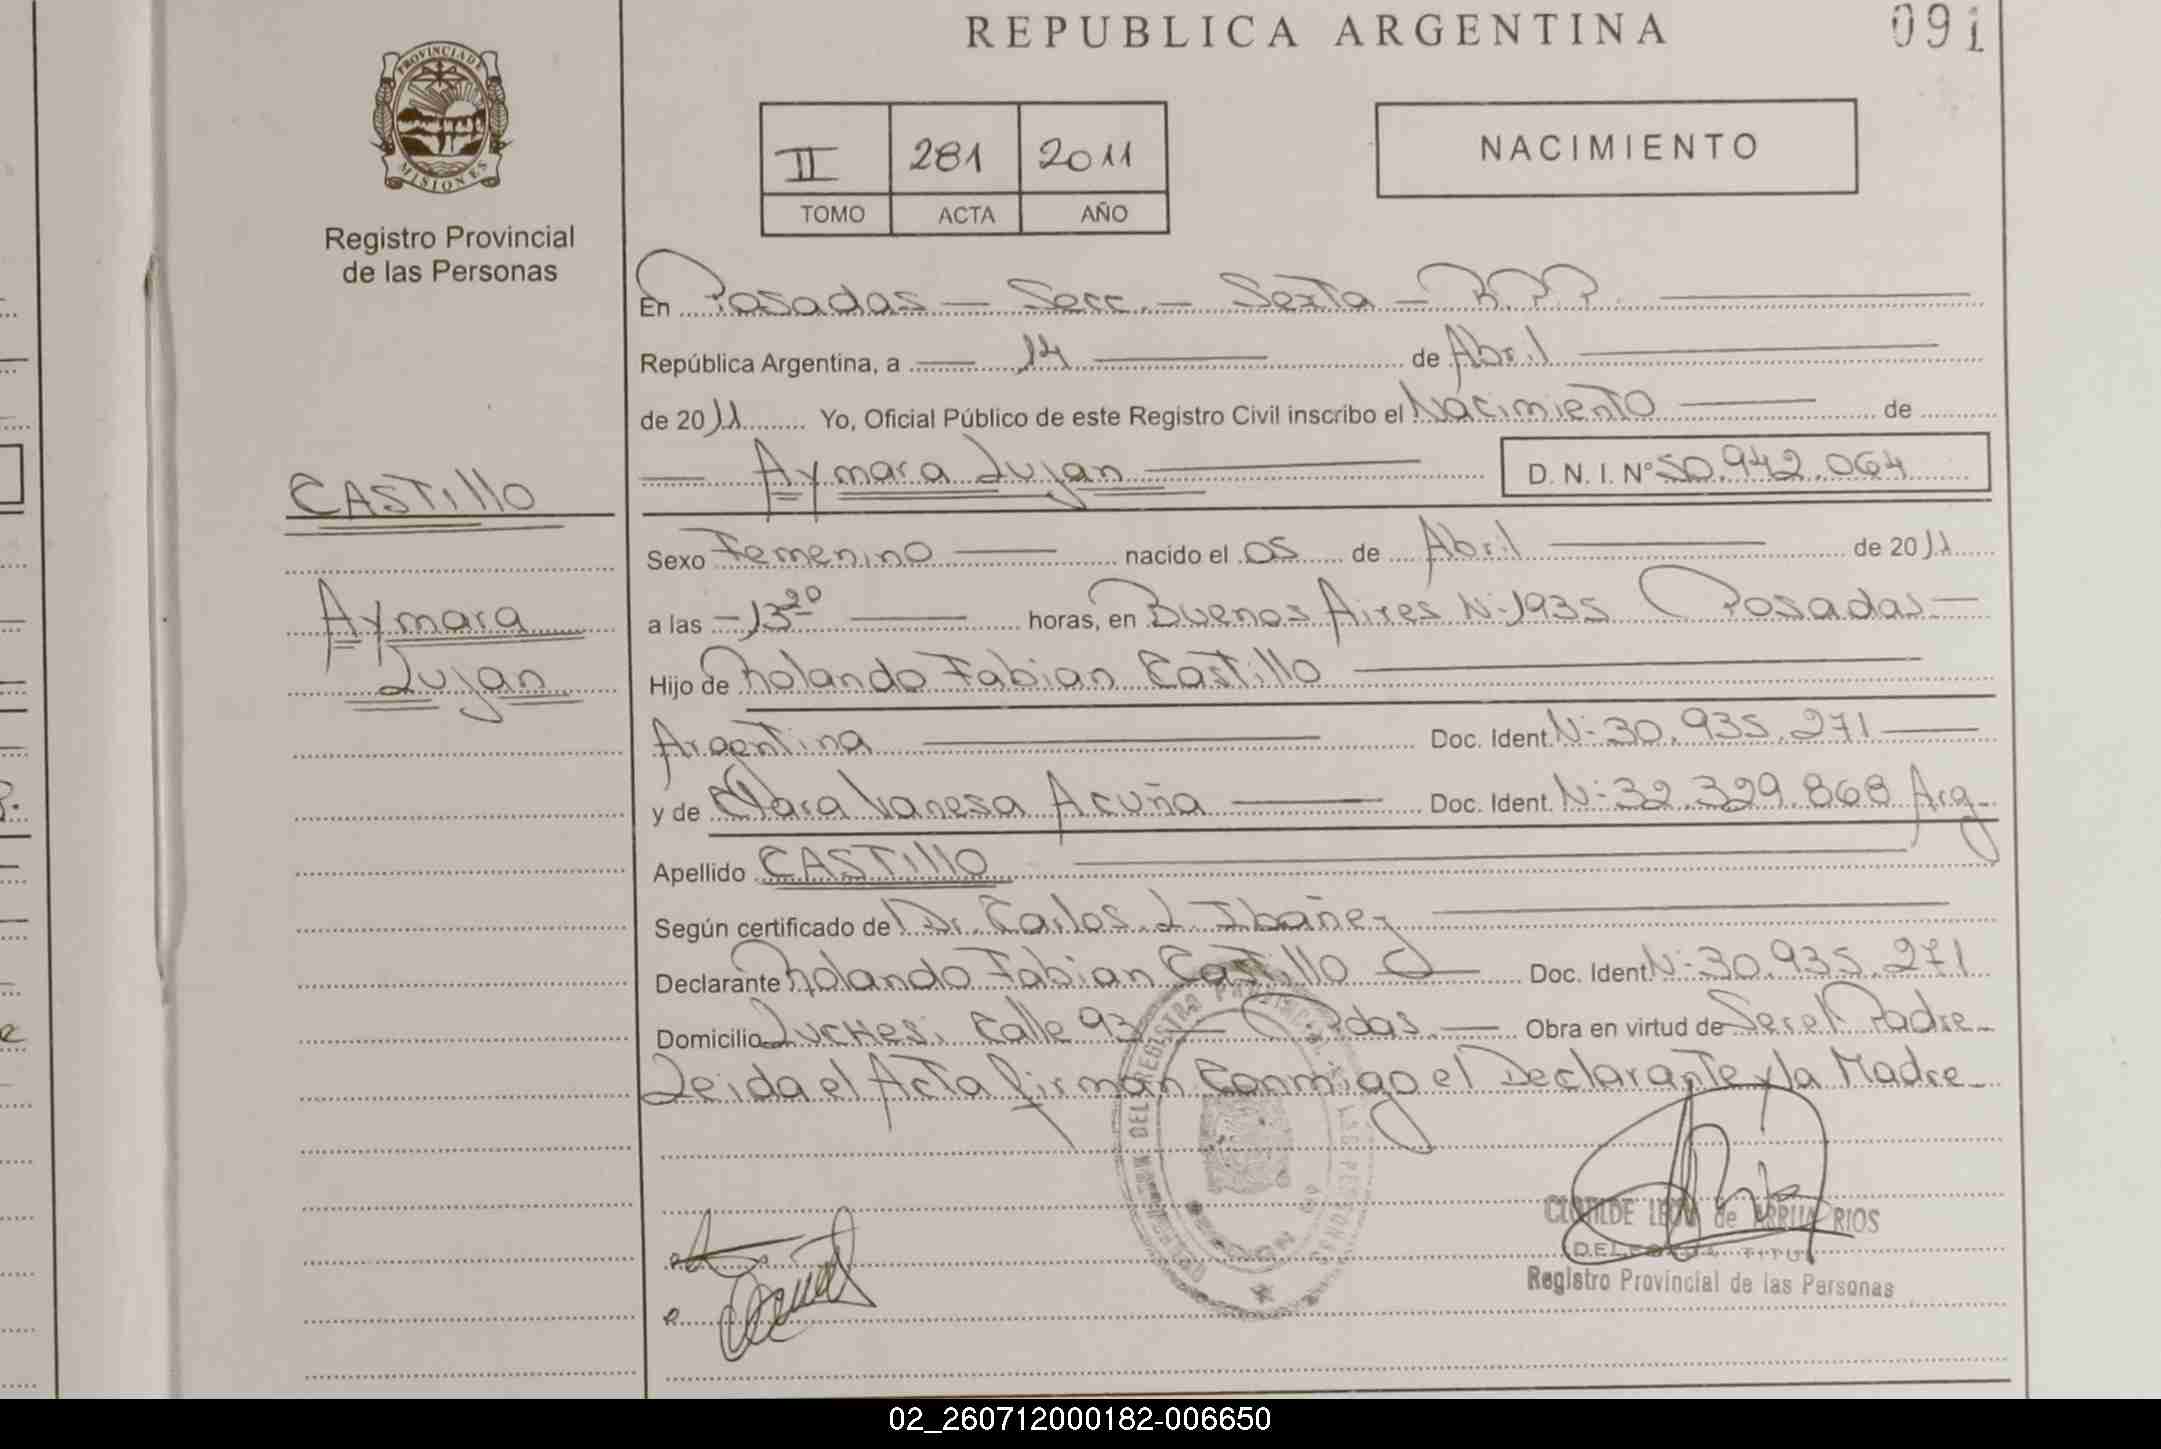 REPUBLICA ARGENTINA
091
PROVINCIA DE
MISIONES
Registro Provincial
de las Personas
II 281 2011
TOMO ACTA AÑO
NACIMIENTO
En Posadas — Secc. — Sexta — R.P.P.
República Argentina, a 14 de Abril
de 2011 Yo, Oficial Público de este Registro Civil inscribo el Nacimiento de
Aymara Lujan
D. N. I. Nº 50.942.064
CASTillo
Aymara
Lujan
Sexo Femenino nacido el 05 de Abril de 2011
a las 13 20 horas, en Buenos Aires N-1935 Posadas
Hijo de Rolando Fabian Castillo
Argentina Doc. Ident. N- 30.935.271
y de Clara Vanesa Acuña Doc. Ident. N- 32.329.868 Arg
Apellido CASTillo
Según certificado de Dr. Carlos L Ibañez
Declarante Rolando Fabian Castillo Doc. Ident. N- 30.935.271
Domicilio Luchesi Calle 93 — Pdas. Obra en virtud de Ser el Padre
Leida el Acta firman Conmigo el Declarante y la Madre
CLOTILDE de RIOS
Registro Provincial de las Personas
02_260712000182-006650